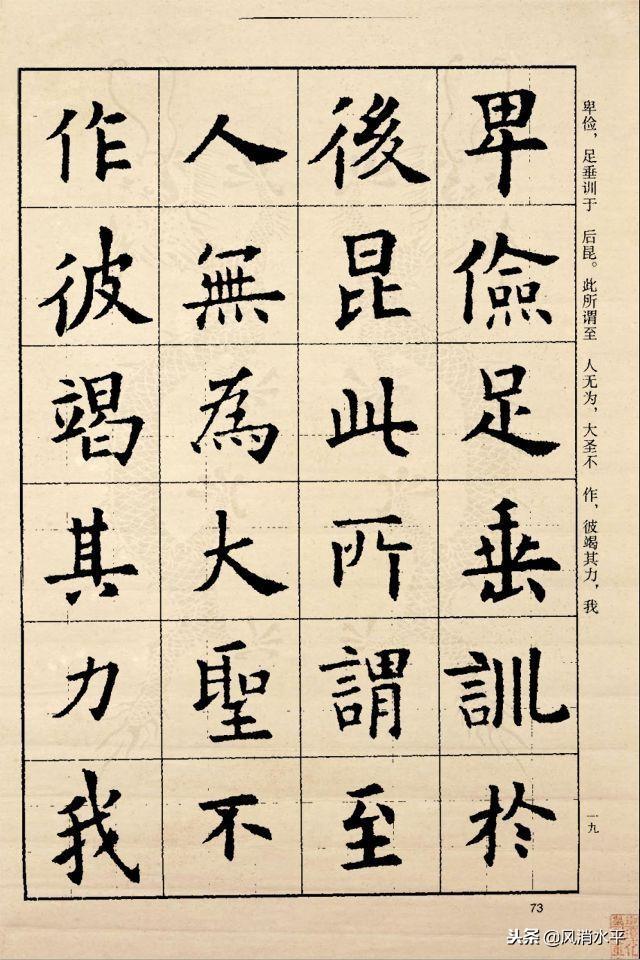 卑儉足垂訓於
後昆此所謂至
人無為大聖不
作彼竭其力我
卑俭，足垂训于 后昆。此所谓至 人无为，大圣不 作，彼竭其力，我
一九
73
头条 @风消水平